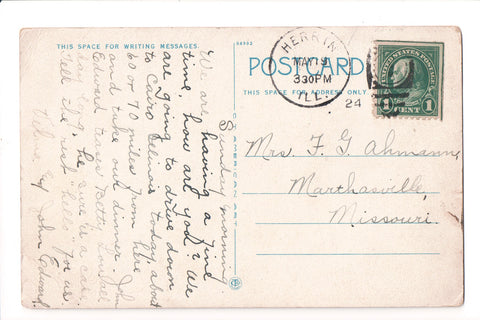 THIS SPACE FOR WRITING MESSAGES.
94992
POSTCARD
THIS SPACE FOR ADDRESS ONLY.
HERRIN
MAY 19
330PM
ILL.
24
UNITED STATES POSTAGE
1 CENT 1
C. T. AMERICAN ART
Mrs. F. G. Ahmann,
Marthasville,
Missouri.
Sunday morning.
"We are having a fine
time, how are you? We
are going to drive down
to Cairo Illinois today, about
60 or 70 miles from here
and take our dinner. John
Edward tease Betty
day, he sure is a case.
Tell the rest "hello" for us
John Edward